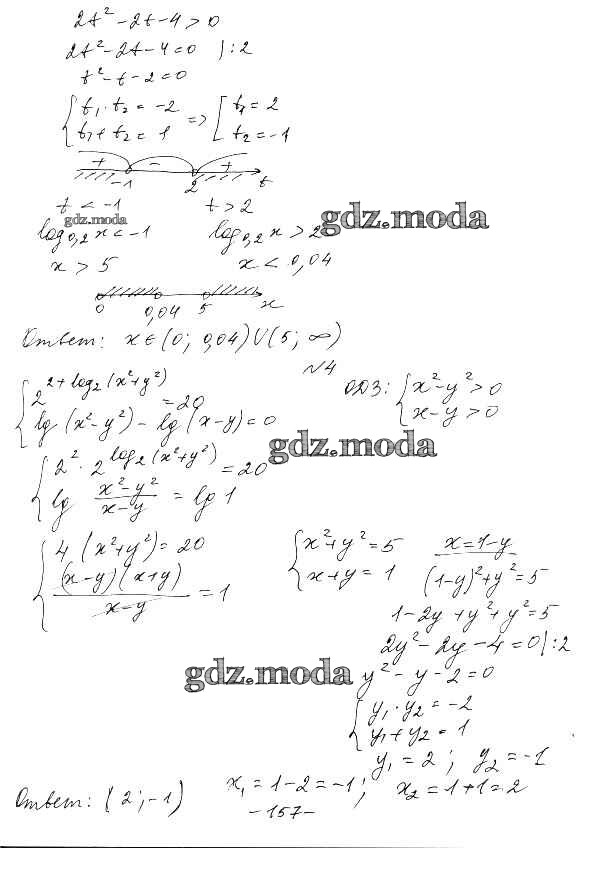 2t² - 2t - 4 > 0
2t² - 2t - 4 = 0 | : 2
t² - t - 2 = 0
{ t₁ · t₂ = -2
t₁ + t₂ = 1 => [ t₁ = 2
t₂ = -1
+ - +
-1 2 t
t < -1 t > 2
gdz.moda
gdz.moda
log₀,₂ x < -1 log₀,₂ x > 2
x > 5 x < 0,04
0 0,04 5 x
Ответ: x ∈ (0; 0,04) U (5; ∞)
N4
{ 2^(2 + log₂(x² + y²)) = 20
lg (x² - y²) - lg (x - y) = 0
ОДЗ: { x² - y² > 0
x - y > 0
gdz.moda
{ 2² · 2^(log₂(x² + y²)) = 20
lg (x² - y²)/(x - y) = lg 1
{ 4 (x² + y²) = 20
(x - y)(x + y)/(x - y) = 1
{ x² + y² = 5
x + y = 1
x = 1 - y
(1 - y)² + y² = 5
1 - 2y + y² + y² = 5
2y² - 2y - 4 = 0 | : 2
gdz.moda
y² - y - 2 = 0
{ y₁ · y₂ = -2
y₁ + y₂ = 1
y₁ = 2 ; y₂ = -1
x₁ = 1 - 2 = -1 ; x₂ = 1 + 1 = 2
Ответ: (2; -1)
-157-